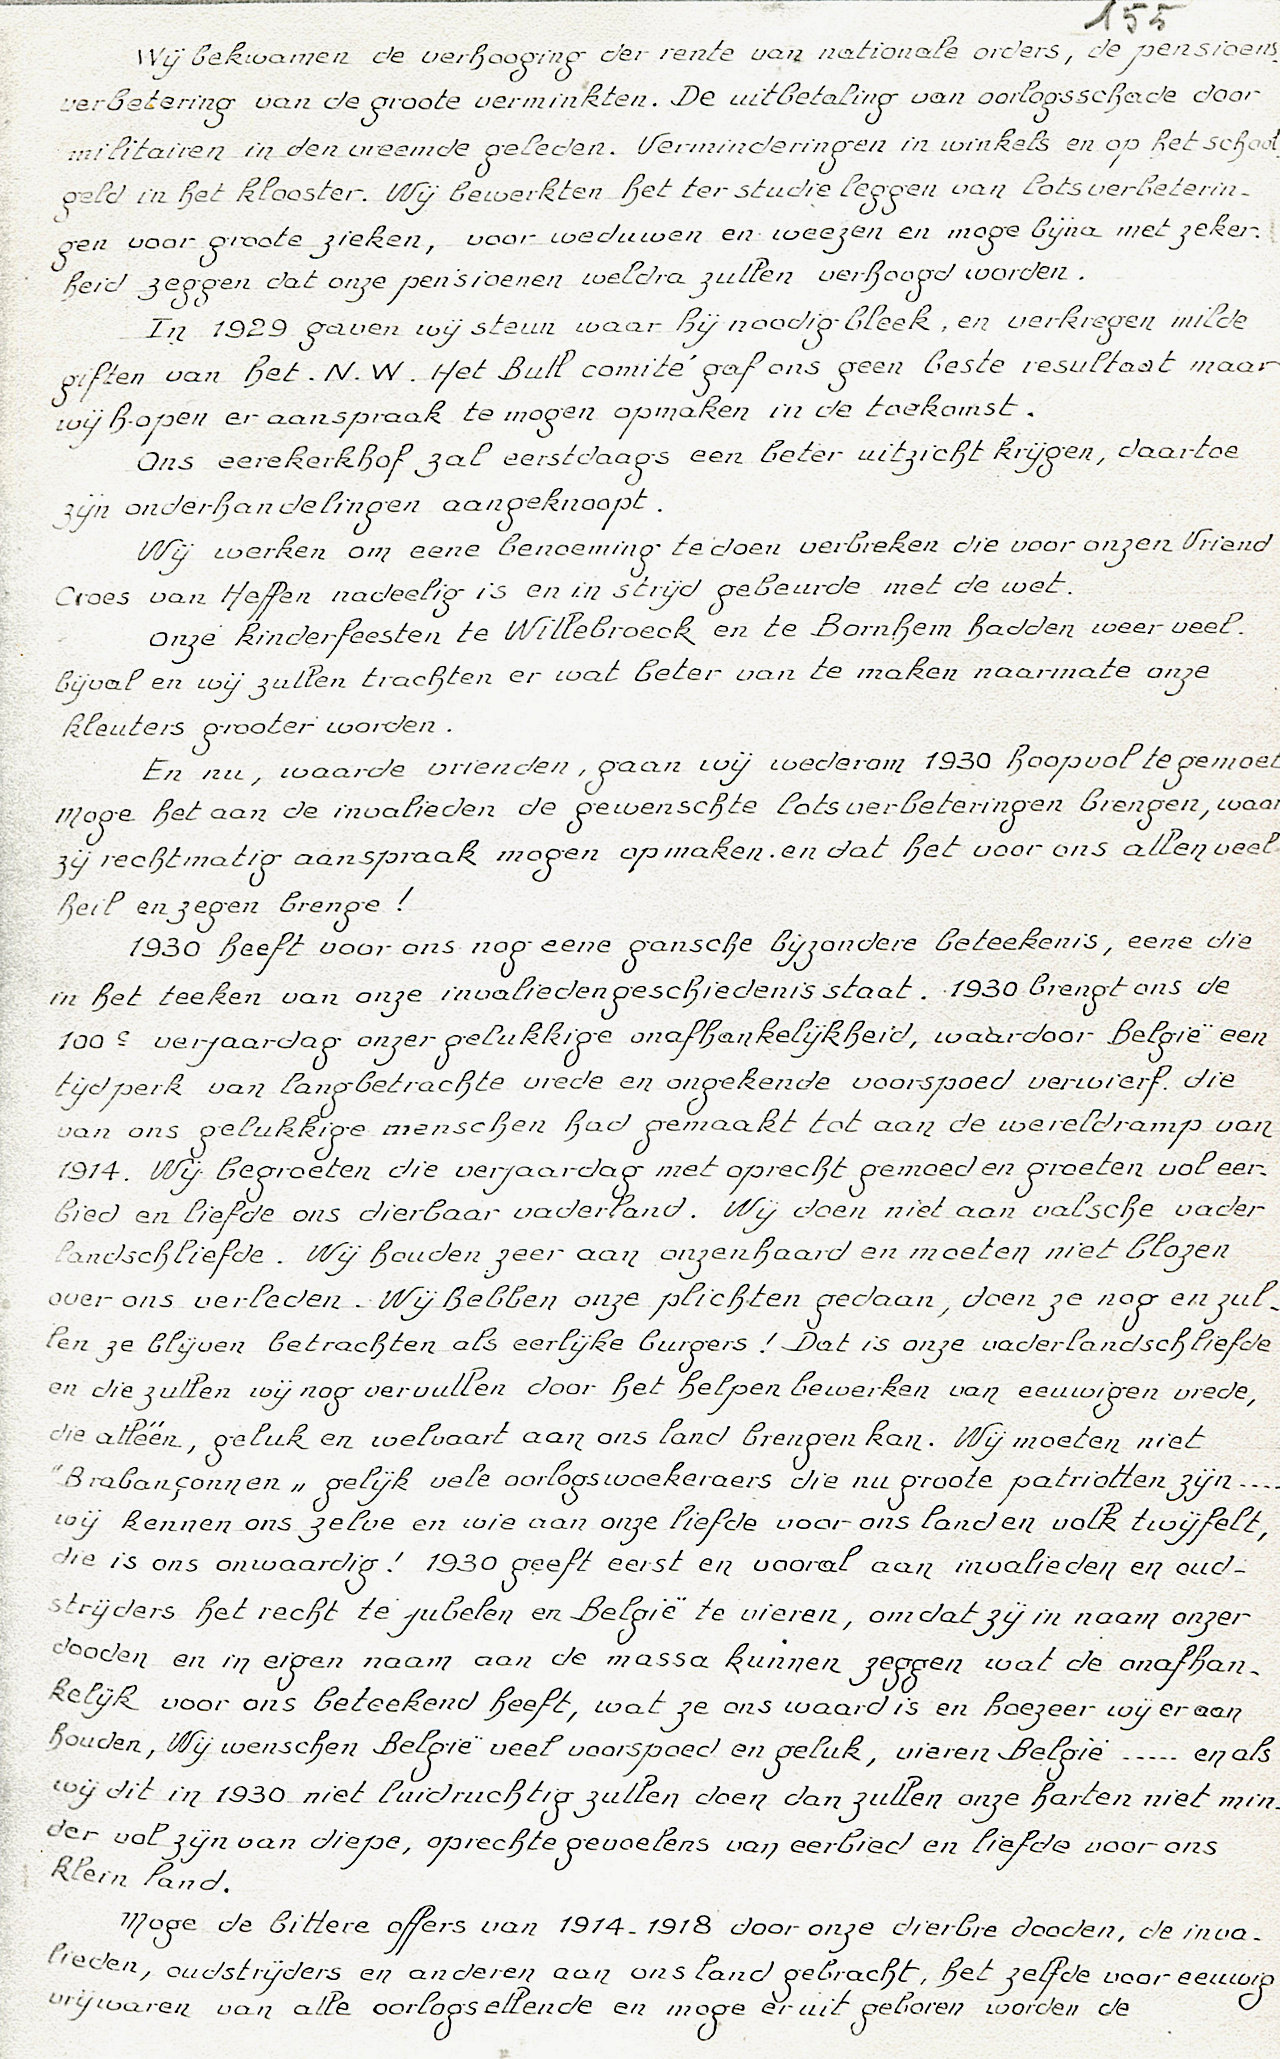 155
Wij bekwamen de verhooging der rente van nationale orders, de pensioens-
verbetering van de groote verminkten. De uitbetaling van oorlogsschade door
militairen in den vreemde geleden. Verminderingen in winkels en op het school
geld in het klooster. Wij bewerkten het ter studie leggen van lotsverbeterin-
gen voor groote zieken, voor weduwen en weezen en moge bijna met zeker-
heid zeggen dat onze pensioenen weldra zullen verhoogd worden.
In 1929 gaven wij steun waar hij noodig bleek, en verkregen milde
giften van het. N.W. Het Bull comité gaf ons geen beste resultaat maar
wij hopen er aanspraak te mogen opmaken in de toekomst.
Ons eerekerkhof zal eerstdaags een beter uitzicht krijgen, daartoe
zijn onderhandelingen aangeknoopt.
Wij werken om eene benoeming te doen verbreken die voor onzen Vriend
Croes van Heffen nadeelig is en in strijd gebeurde met de wet.
Onze kinderfeesten te Willebroeck en te Bornhem hadden weer veel.
bijval en wij zullen trachten er wat beter van te maken naarmate onze
kleuters grooter worden.
En nu, waarde vrienden, gaan wij wederom 1930 hoopvol tegemoet
Moge het aan de invalieden de gewenschte lotsverbeteringen brengen, waar
zij rechtmatig aanspraak mogen opmaken. en dat het voor ons allen veel
heil en zegen brenge!
1930 heeft voor ons nog eene gansche bijzondere beteekenis, eene die
in het teeken van onze invaliedengeschiedenis staat. 1930 brengt ons de
100e verjaardag onzer gelukkige onafhankelijkheid, waardoor België een
tijdperk van langbetrachte vrede en ongekende voorspoed verwierf. die
van ons gelukkige menschen had gemaakt tot aan de wereldramp van
1914. Wij begroeten die verjaardag met oprecht gemoed en groeten vol eer-
bied en liefde ons dierbaar vaderland. Wij doen niet aan valsche vader
landschliefde. Wij houden zeer aan onzen haard en moeten niet blozen
over ons verleden. Wij hebben onze plichten gedaan, doen ze nog en zul-
len ze blijven betrachten als eerlijke burgers! Dat is onze vaderlandschliefde
en die zullen wij nog vervullen door het helpen bewerken van eeuwigen vrede,
die alléén, geluk en welvaart aan ons land brengen kan. Wij moeten niet
"Brabançonnen" gelijk vele oorlogswoekeraers die nu groote patriotten zijn....
wij kennen ons zelve en wie aan onze liefde voor ons land en volk twijfelt,
die is ons onwaardig! 1930 geeft eerst en vooral aan invalieden en oud-
strijders het recht te jubelen en België te vieren, omdat zij in naam onzer
dooden en in eigen naam aan de massa kunnen zeggen wat de onafhan-
kelijk voor ons beteekend heeft, wat ze ons waard is en hoezeer wij er aan
houden, Wij wenschen België veel voorspoed en geluk, vieren België ..... en als
wij dit in 1930 niet luidruchtig zullen doen dan zullen onze harten niet min-
der vol zijn van diepe, oprechte gevoelens van eerbied en liefde voor ons
klein land.
Moge de bittere offers van 1914-1918 door onze dierbre dooden, de inva-
lieden, oudstrijders en anderen aan ons land gebracht, het zelfde voor eeuwig
vrijwaren van alle oorlogsellende en moge er uit geboren worden de